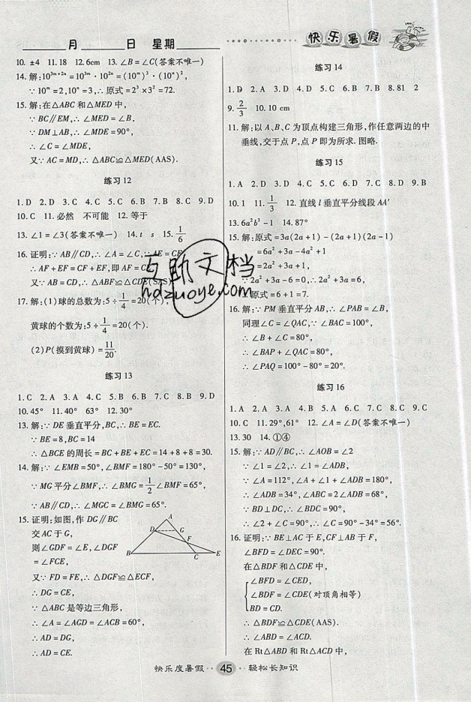 月 日 星期
快乐暑假
10. ±4 11. 18 12. 6cm 13. ∠B=∠C(答案不唯一)
14. 解:10³ᵐ⁺²ⁿ=10³ᵐ·10²ⁿ=(10ᵐ)³·(10ⁿ)²,
∵10ᵐ=2,10ⁿ=3,∴原式=2³×3²=72.
15. 解:在△ABC和△MED中,
∵BC∥EM,∴∠MED=∠B,
∵DM⊥AB,∴∠MDE=90°,
∴∠C=∠MDE,
又∵AC=MD,∴△ABC≌△MED(AAS).
练习 12
1. D 2. D 3. A 4. D 5. C 6. A 7. D 8. D 9. D
10. C 11. 必然 不可能 12. 等于
13. ∠1=∠3(答案不唯一) 14. t s 15. 1/6
16. 证明:∵AB∥CD,∴∠A=∠C,∵AE=CF,
∴AF+EF=CF+EF,即AF=C
∴△ABF≌△CDE(SAS).
17. 解:(1)球的总数为:5÷1/4=20(个),
黄球的个数为:5÷1/4=20(个).
(2)P(摸到黄球)=11/20.
练习 13
1. C 2. A 3. D 4. C 5. C 6. B 7. C 8. B 9. D
10. 45° 11. 40° 63° 12. 30°
13. 解:∵DE垂直平分,BC,∴BE=EC.
∵BE=8,BC=14
∴△BCE的周长=BC+BE+EC=14+8+8=30.
14. 解:∵∠EMB=50°,∠BMF=180°-50°=130°,
∵MG平分∠BMF,∴∠BMG=1/2∠BMF=65°,
∵AB∥CD,∴∠MGC=∠BMG=65°.
15. 证明:如图,作DG∥BC
交AC于G,
则∠GDF=∠E,∠DGF
=∠FCE,
又∵FD=FE,∴△DGF≌△ECF,
∴DG=CE,
∵△ABC是等边三角形,
∴∠A=∠AGD=∠ACB=60°,
∴AD=DG,
∴AD=CE.
A
D G
F
B C E
练习 14
1. D 2. A 3. D 4. D 5. C 6. B 7. B 8. 81 2
9. 2/3 10. 10 cm
11. 解:以A,B,C为顶点构建三角形,作任意两边的中
垂线,交于点P,点P即为所求. 图略.
练习 15
1. D 2. D 3. A 4. B 5. D 6. C 7. D 8. B 9. D
10. 1 11. 1/3 12. 直线l垂直平分线段AA′
13. 6a²b³-1 14. 87°
15. 解:原式=3a(2a+1)-(2a+1)(2a-1)
=6a²+3a-4a²+1
=2a²+3a+1
∵2a²+3a-6=0,∴2a²+3a=6,
∴原式=6+1=7.
16. 解:∵PM垂直平分AB,∴∠PAB=∠B,
同理∠CAQ=∠C,∵∠BAC=100°,
∴∠B+∠C=80°,
∴∠BAP+∠QAC=80°,
∴∠PAQ=100°-80°=20°.
练习 16
1. B 2. B 3. A 4. A 5. D 6. B 7. C 8. B 9. C
10. C 11. 29°,61° 12. ∠A=∠D(答案不唯一)
13. 30 14. ①④
15. 解:∵AD∥BC,∴∠AOB=∠2
∵∠1=∠2,∴∠1=∠ADB,
∵∠A=112°,∠A+∠1+∠ADB=180°,
∴∠ADB=34°,∠ABC=2∠ADB=68°,
∵BD⊥DC,∴∠BDC=90°,
∴∠2+∠C=90°,∴∠C=90°-34°=56°.
16. 证明:∵BE⊥AC于E,CF⊥AB于F,
∠BFD=∠DEC=90°.
在△BDF和△CDE中,
∠BFD=∠CED,
∠BDF=∠CDE(对顶角相等)
BD=CD.
∴△BDF≌△CDE(AAS).
在Rt△AED和Rt△ACD中,
互助文档
hdzuoye.com
快乐度暑假··45··轻松长知识